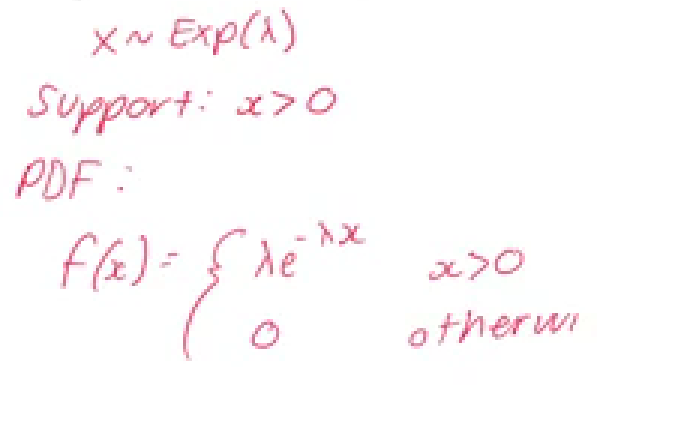 x ~ Exp(λ)
Support: x>0
PDF:
f(x) = { λe^{-λx} x>0
0 otherwi